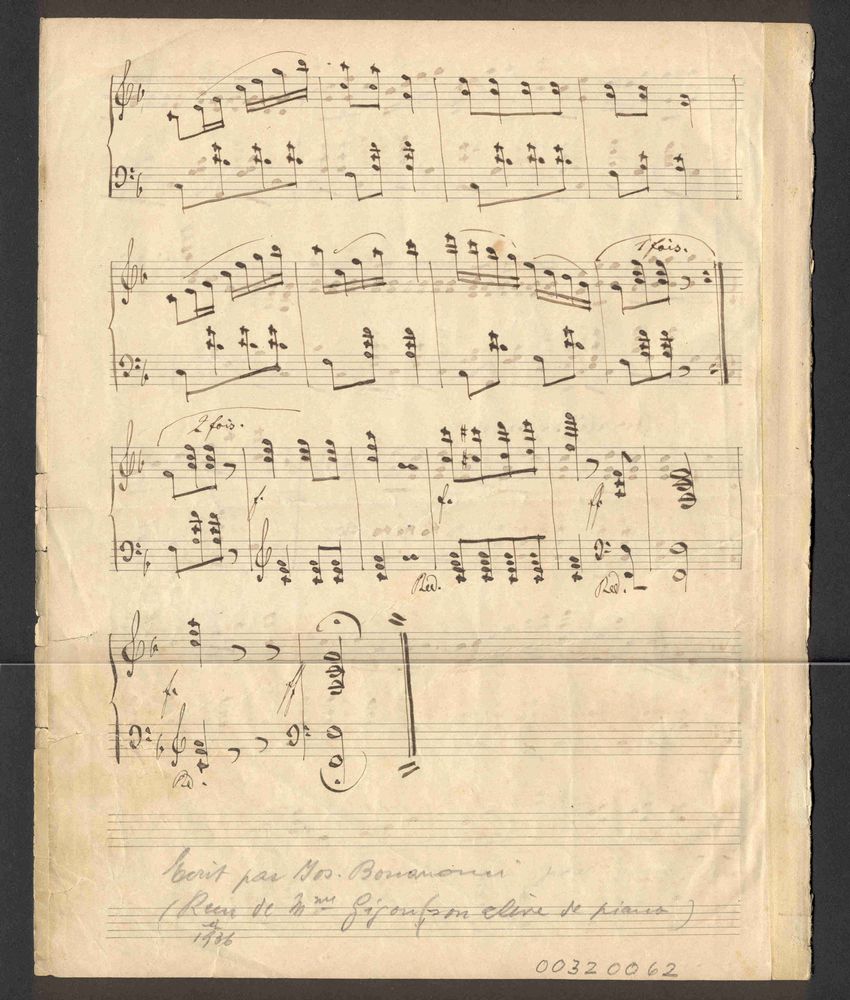 1 fois.
2 fois.
f.
f.
ff
Ped.
Ped.
f.
ff
Ped.
Ecrit par Jos. Bonanomi
(Reçu de Mme Gigon (son élève de piano)
1936
00320062